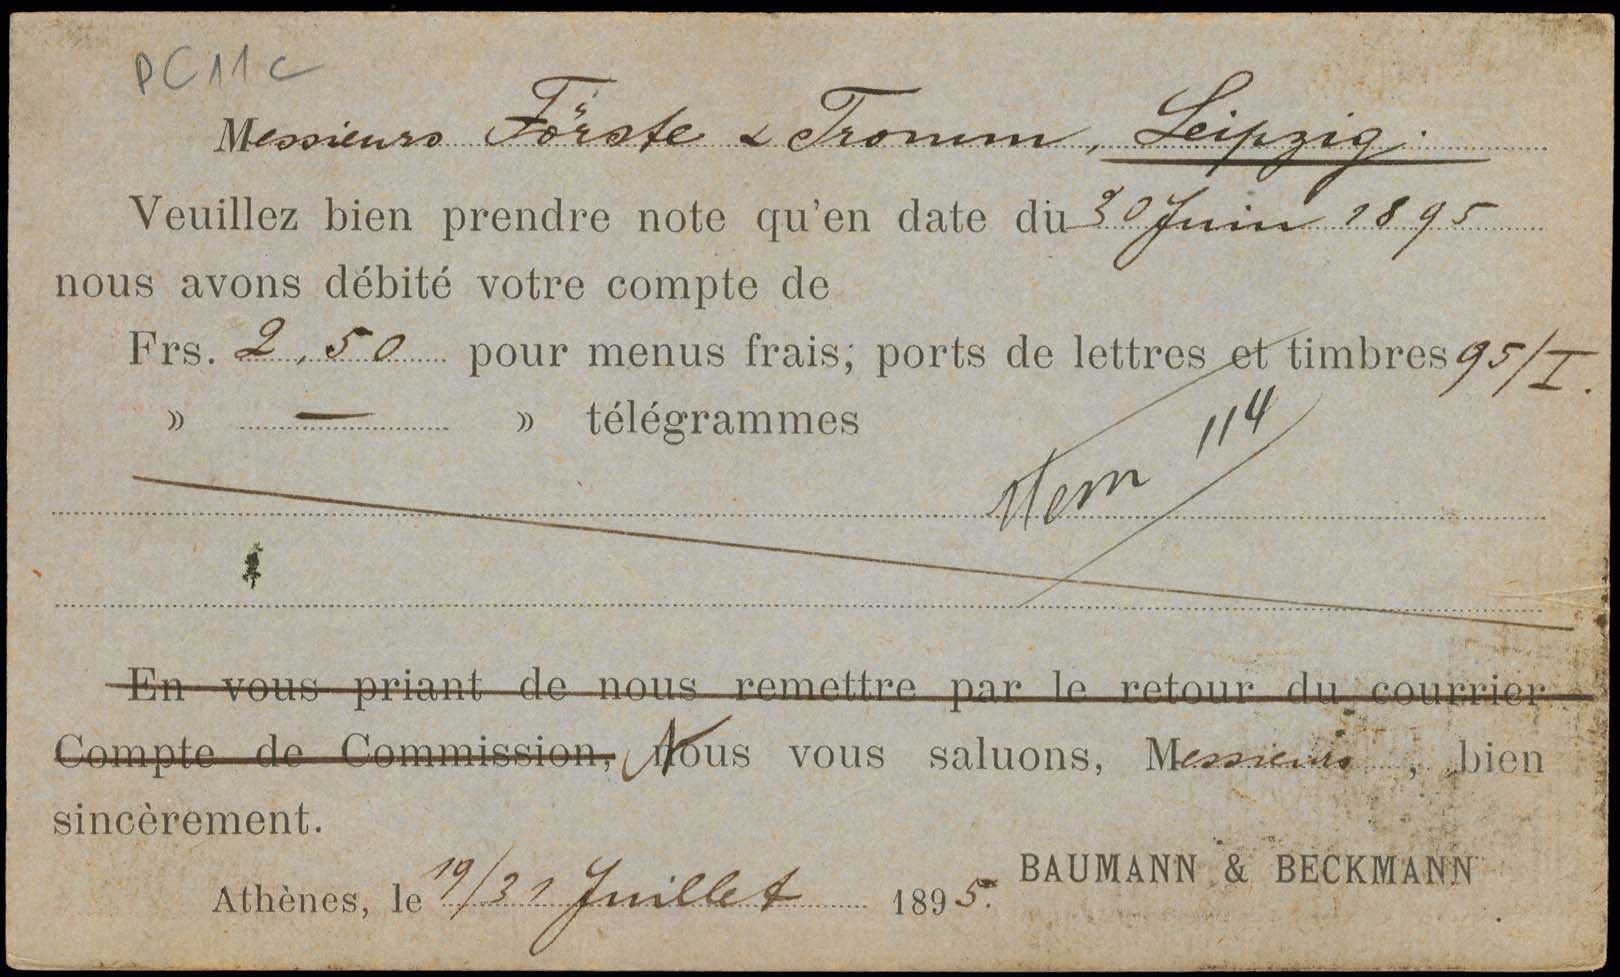 PC11c
Messieurs Förste & Tromm, Leipzig.
Veuillez bien prendre note qu'en date du 30 Juin 1895
nous avons débité votre compte de
Frs. 2,50 pour menus frais, ports de lettres et timbres 95/I.
» — » télégrammes
114
En vous priant de nous remettre par le retour du courrier
Compte de Commission, Nous vous saluons, Messieurs, bien
sincèrement.
BAUMANN & BECKMANN
Athènes, le 19/31 Juillet 1895.